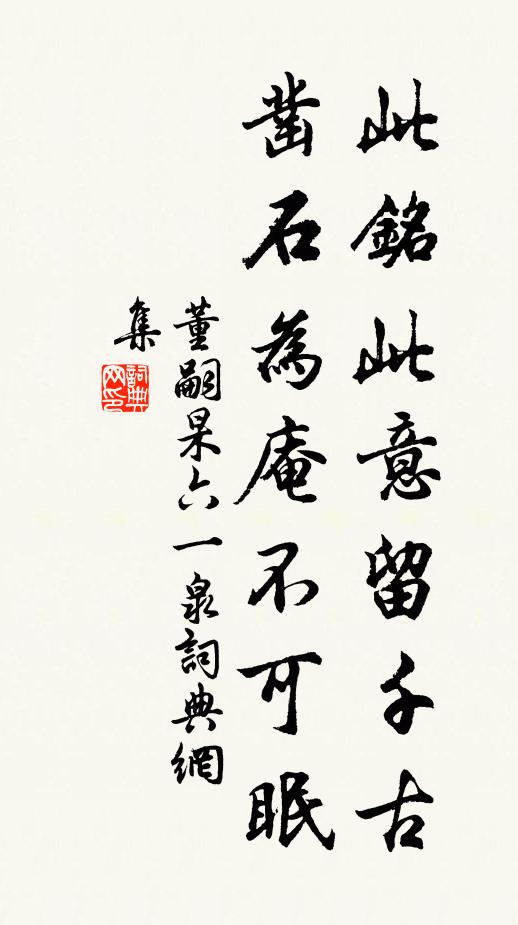 此銘此意留千古
鑿石為庵不可眠
董嗣杲六一泉詞典網
集
詞典网印